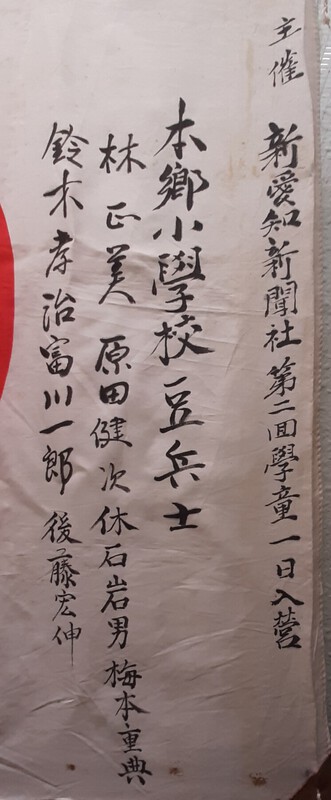 主催
新愛知新聞社 第二回學童一日入營
本鄉小學校 豆兵士
林正美 原田健次 休石岩男 梅本重典
鈴木孝治 富川一郎 後藤宏伸